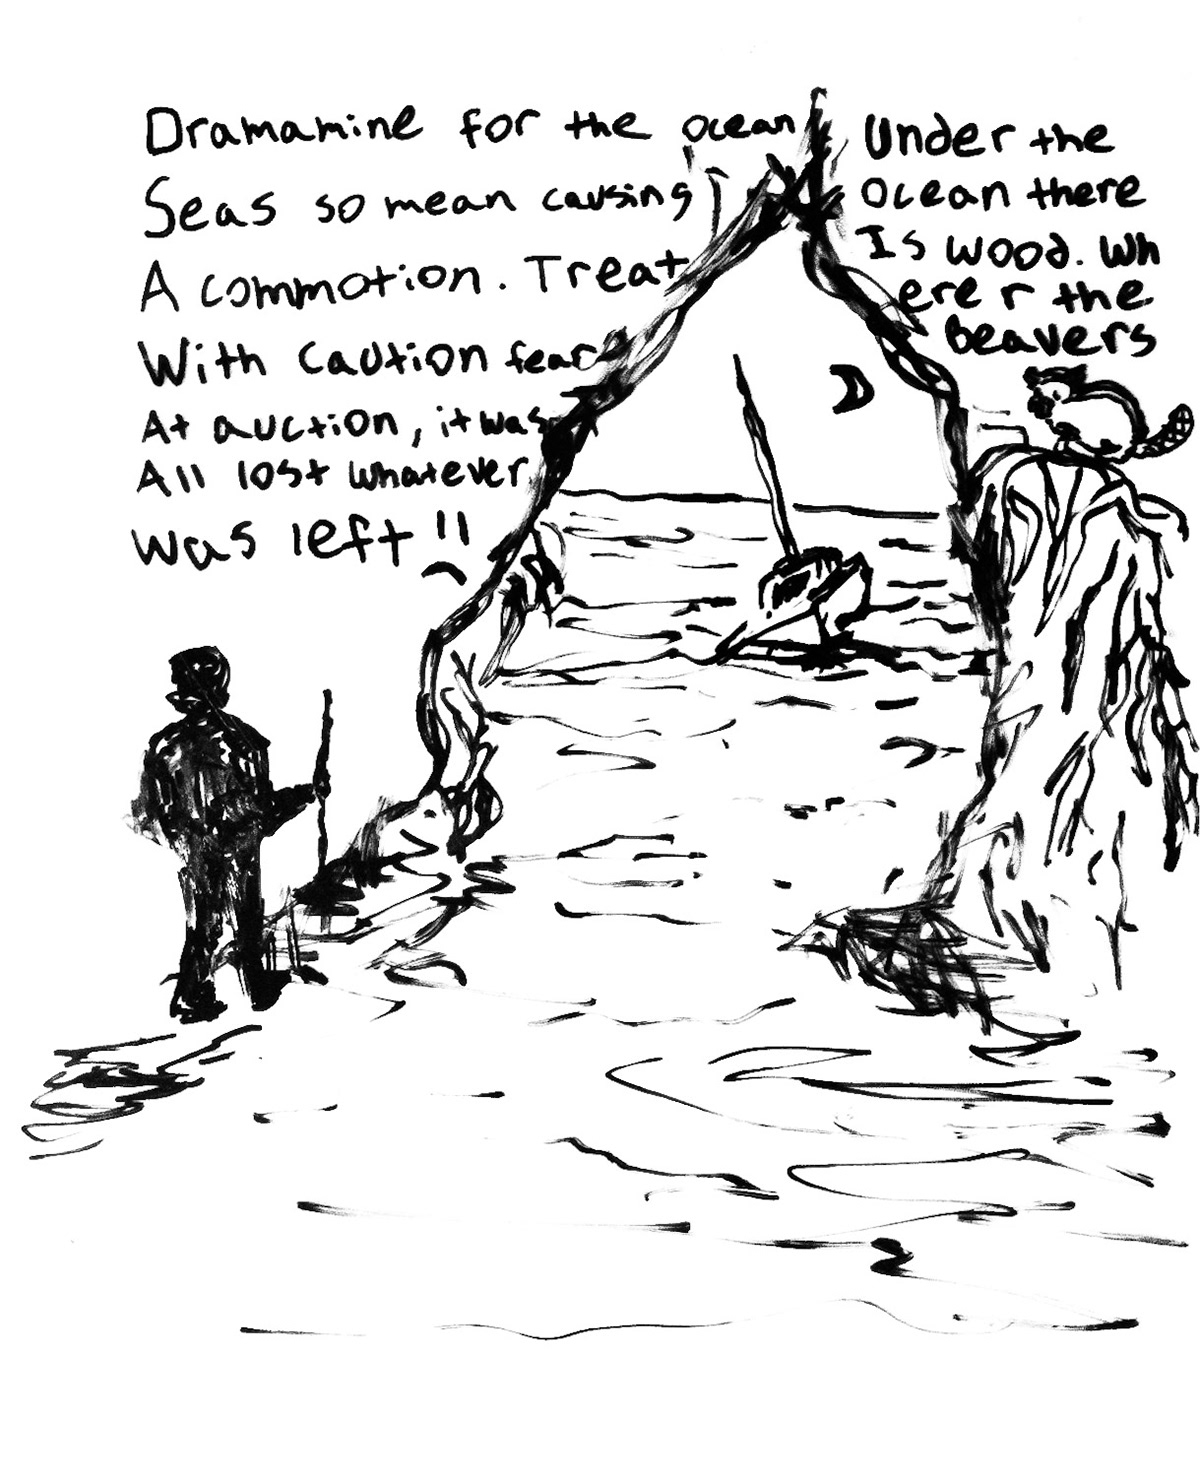 Dramamine for the ocean
Seas so mean causing
A commotion. Treat
With caution fear
At auction, it was
All lost whatever
was left !!
Under the
Ocean there
Is wood. Wh
ere r the
Beavers